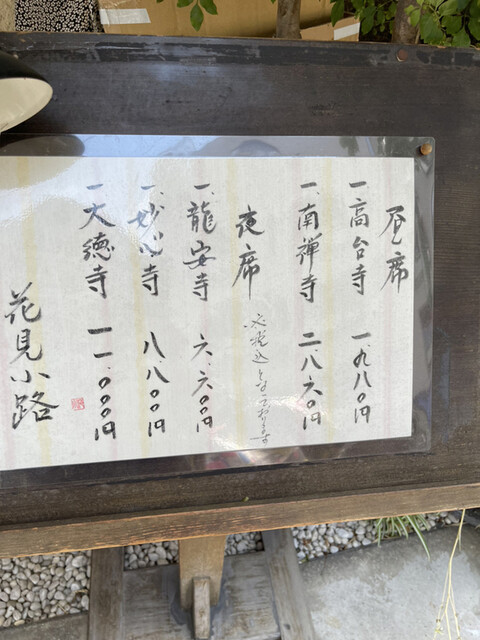 昼席
一、高台寺 一、九八〇円
一、南禅寺 二、八六〇円
夜席
一、龍安寺 六、六〇〇円
一、妙心寺 八、八〇〇円
一、大徳寺 一一、〇〇〇円
花見小路